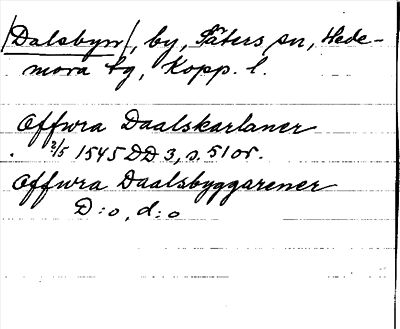 |Dalsbyn|, by, Säters sn, Hede-
mora tg, Kopp. l.
Offwra Daalskarlaner
2/5 1545 DD 3, s. 51 or.
Offwra Daalsbyggarener
D:o, d:o